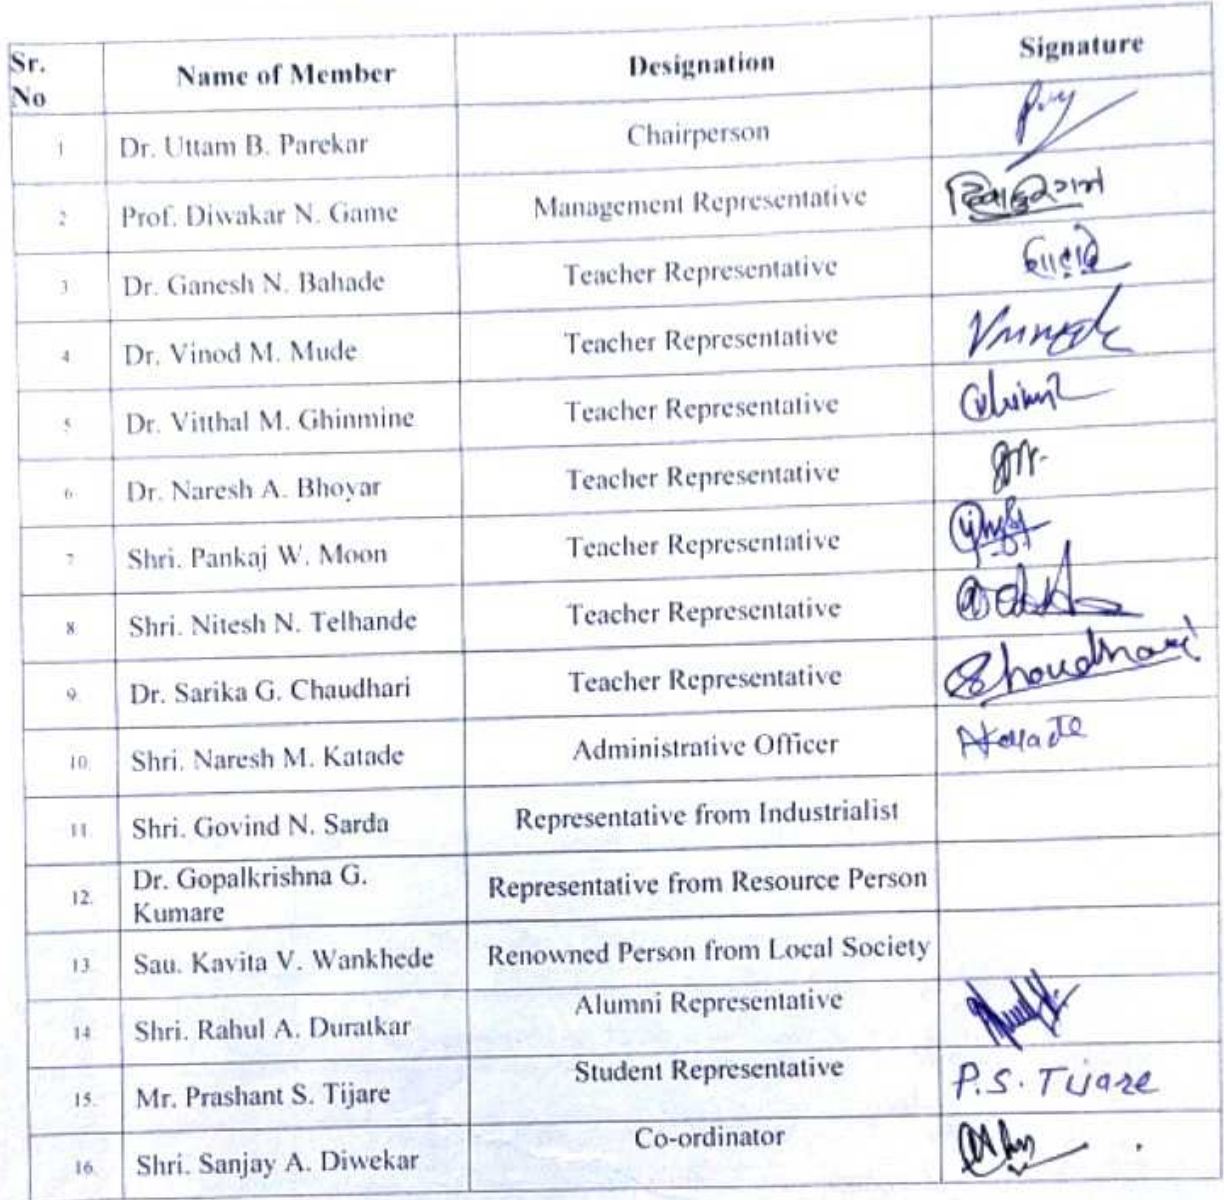 Sr. No Name of Member Designation Signature
1 Dr. Uttam B. Parekar Chairperson
2 Prof. Diwakar N. Game Management Representative
3 Dr. Ganesh N. Bahade Teacher Representative
4 Dr. Vinod M. Mude Teacher Representative
5 Dr. Vitthal M. Ghinmine Teacher Representative
6 Dr. Naresh A. Bhoyar Teacher Representative
7 Shri. Pankaj W. Moon Teacher Representative
8 Shri. Nitesh N. Telhande Teacher Representative
9. Dr. Sarika G. Chaudhari Teacher Representative
10. Shri. Naresh M. Katade Administrative Officer
11 Shri. Govind N. Sarda Representative from Industrialist
12. Dr. Gopalkrishna G. Kumare Representative from Resource Person
13 Sau. Kavita V. Wankhede Renowned Person from Local Society
14 Shri. Rahul A. Duratkar Alumni Representative
15. Mr. Prashant S. Tijare Student Representative P.S. Tijare
16. Shri. Sanjay A. Diwekar Co-ordinator